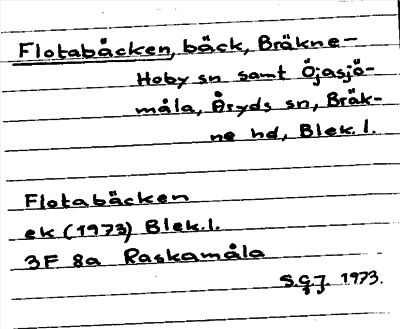 Flotabäcken, bäck, Bräkne-
Hoby sn samt Öjasjö-
måla, Åryds sn, Bräk-
ne hd, Blek.l.
Flotabäcken
ek (1973) Blek.l.
3F 8a Raskamåla
S.G.J. 1973.